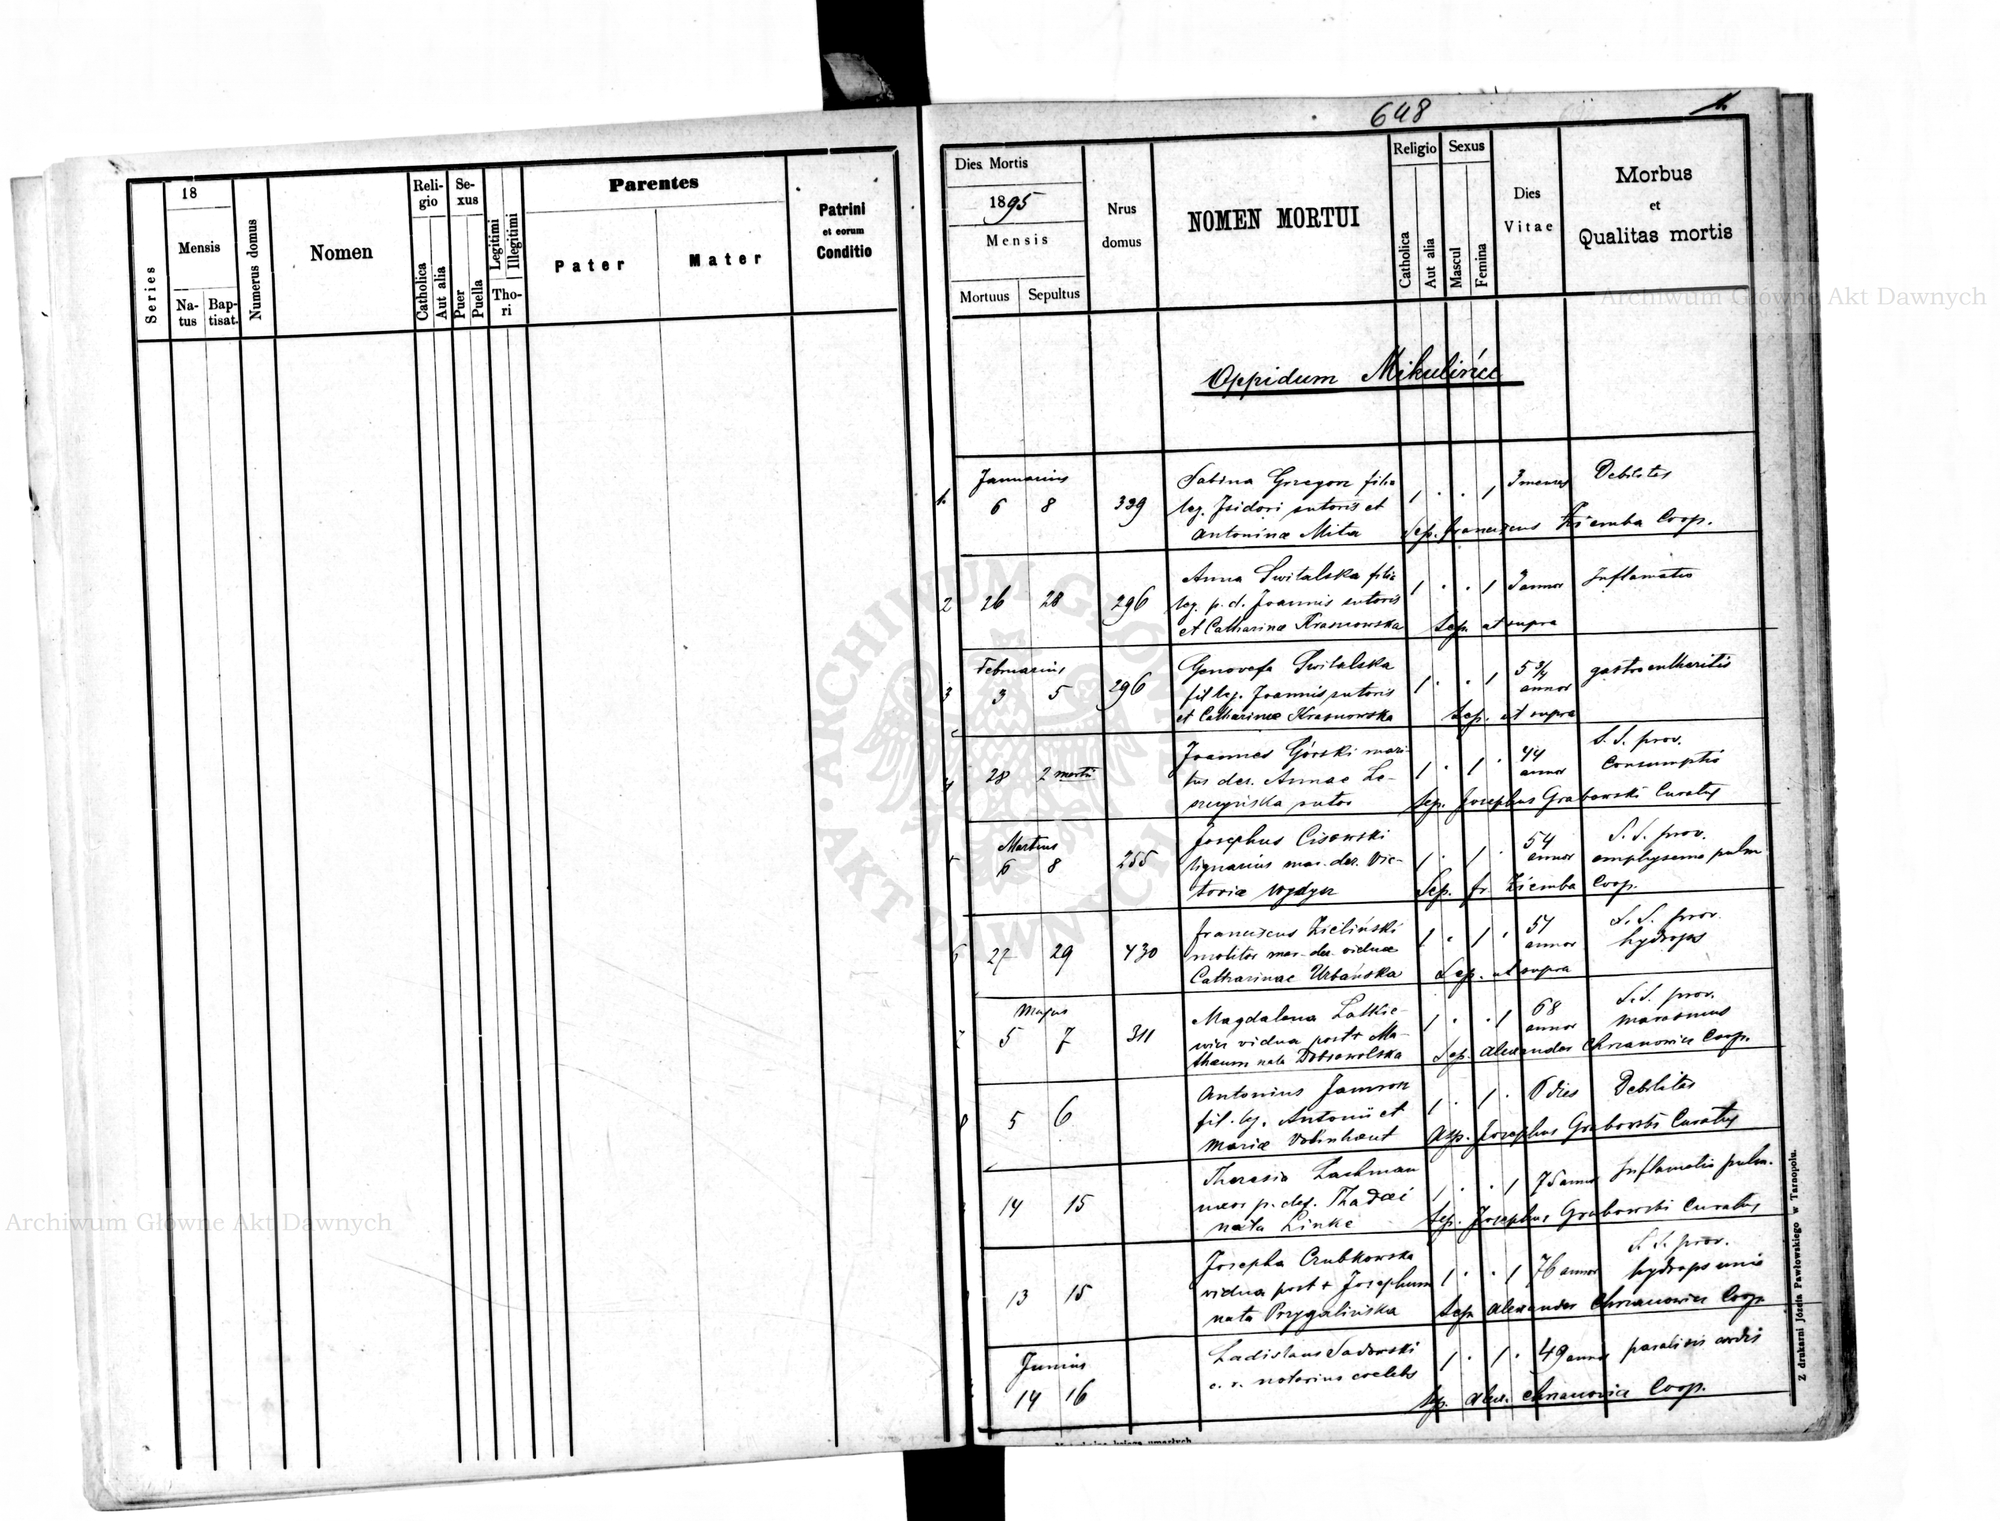 648
1.
Series
18
Mensis
Na-
tus
Bap-
tisat.
Numerus domus
Nomen
Reli-
gio
Catholica
Aut alia
Se-
xus
Puer
Puella
Legitimi
Illegitimi
Tho-
ri
Parentes
Pater
Mater
Patrini
et eorum
Conditio
Dies Mortis
1895
Mensis
Mortuus
Sepultus
Nrus
domus
NOMEN MORTUI
Religio
Catholica
Aut alia
Sexus
Mascul
Femina
Dies
Vitae
Morbus
et
Qualitas mortis
Oppidum Mikulińce
1.
Januarius
6 8 339
Sabina Grzegorz filia
leg. Isidori sutoris et
Antoninæ Mita
1 . . 1 3 menses Debilitas
Sep. Franciscus Ziemba Coop.
2
26 28 296
Anna Switalska filia
leg. p. d. Joannis sutoris
et Catharinæ Krasnowska
1 . . 1 3 annor Inflamatio
Sep. ut supra
3
Februarius
3 5 296
Genovefa Switalska
fil leg. Joannis sutoris
et Catharinæ Krasnowska
1 . . 1 5 3/4 annor gastroentheritis
Sep. ut supra
4
28 2 martii
Joannes Górski mari-
tus der. Annae Le-
szczyńska sutor
1 . 1 . 44 annor S. S. prov.
Consumptio
Sep. Josephus Grabowski Curatus
5
Martius
6 8 255
Josephus Cisowski
lignarius mar. der. Vic-
toriæ
1 . 1 . 54 annor S. S. prov.
emphysema pulm
Sep. Fr. Ziemba Coop.
6
27 29 430
Franciscus Zieliński
molitor mar. der. viduæ
Catharinae Urbańska
1 . 1 . 51 annor S. S. prov.
hydrops
Sep. ut supra
7
Majus
5 7 311
Magdalena Latkie-
wicz vidua post + Ma-
thæum nata Dobrowolska
1 . . 1 68 annor S. S. prov.
marasmus
Sep. Alexander Chrzanowicz Coop.
8
5 6
Antonius Jamroz
fil. leg. Antonii et
Mariæ
1 . 1 . 6 dies Debilitas
Sep. Josephus Grabowski Curatus
14 15
Theresia Lachman
uxor p. def. Thadæi
nata Linke
1 . . 1 75 annor Inflamatio pulm.
Sep. Josephus Grabowski Curatus
13 15
Josepha Czubkowska
vidua post + Josephum
nata Przygalińska
1 . . 1 76 annor S. S. prov.
Sep. Alexander Chrzanowicz Coop.
Junius
14 16
Ladislaus Sadowski
c. r. notarius coelebs
1 . 1 . 49 annor paralisis cordis
Sep. Alex. Chrzanowicz Coop.
Z drukarni Józefa Pawłowskiego w Tarnopolu.
ARCHIWUM GŁÓWNE AKT DAWNYCH
Archiwum Główne Akt Dawnych
Archiwum Główne Akt Dawnych